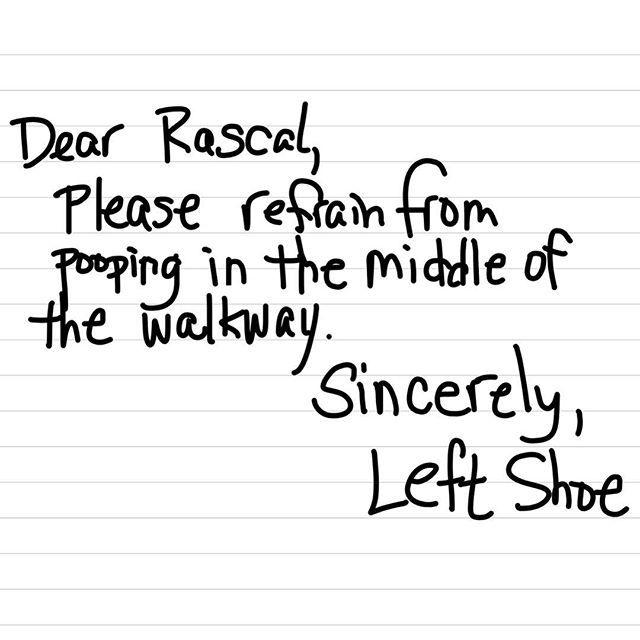 Dear Rascal,
Please refrain from
pooping in the middle of
the walkway.
Sincerely,
Left Shoe